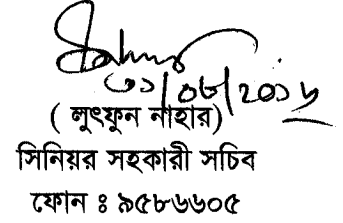 ৩১/০৮/২০১৬
( লুৎফুন নাহার)
সিনিয়র সহকারী সচিব
ফোন ঃ ৯৫৮৬৬০৫